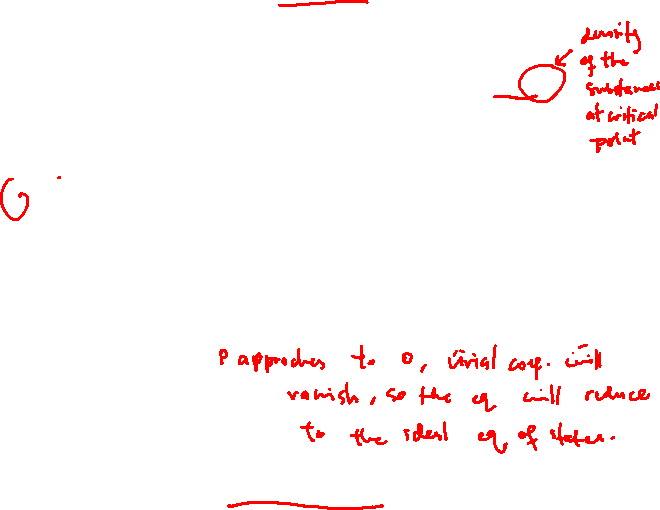 density
of the
substances
at critical
point
P approches to 0, virial coef. will
vanish, so the eq will reduce
to the ideal eq of states.